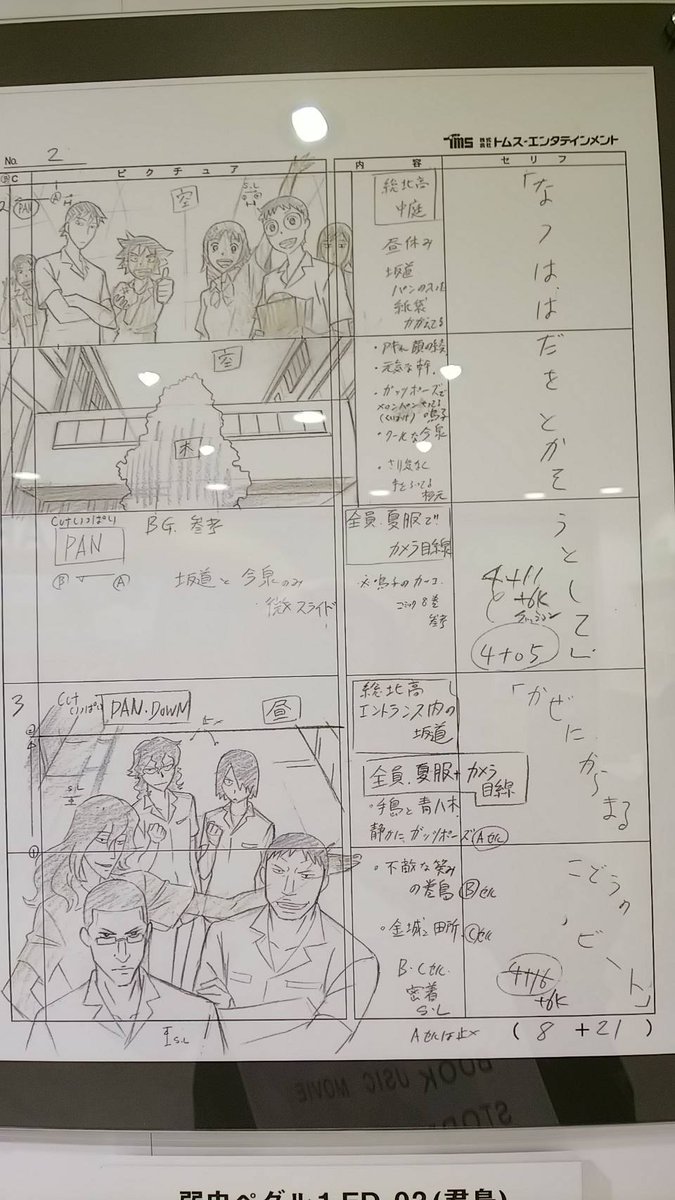 TMS 株式会社 トムス・エンタテインメント
No. 2
C ピクチュア 内容 セリフ
PAN
A
空
S.L
総北高
中庭
昼休み
坂道
パンの入った
紙袋
かかえてる
「なつは、は
空
木
・元気な幹。
・ガッツポーズで
・クールな今泉
だをとかそ
Cutいっぱい
PAN
B A
BG. 参考
坂道と今泉のみ
微スライド
全員.夏服で!!
カメラ目線
コミック8巻
参考
うとして」
4+11
+6K
4+05
3
Cutいっぱい
PAN.DOWN
昼
S.L
総北高
エントランス内の
坂道
全員.夏服+カメラ
目線
・手島と青八木
静かにガッツポーズ Aセル
「かぜに
からまる
・不敵な笑み
の巻島 Bセル
・金城と田所.Cセル
B.Cセル.
密着
S.L
こどうの
ビート」
4+16
+6K
S.L
Aセルは止メ
( 8 + 21 )
BOOK MUSIC MOVIE
弱虫ペダル1 ED-02(君島)